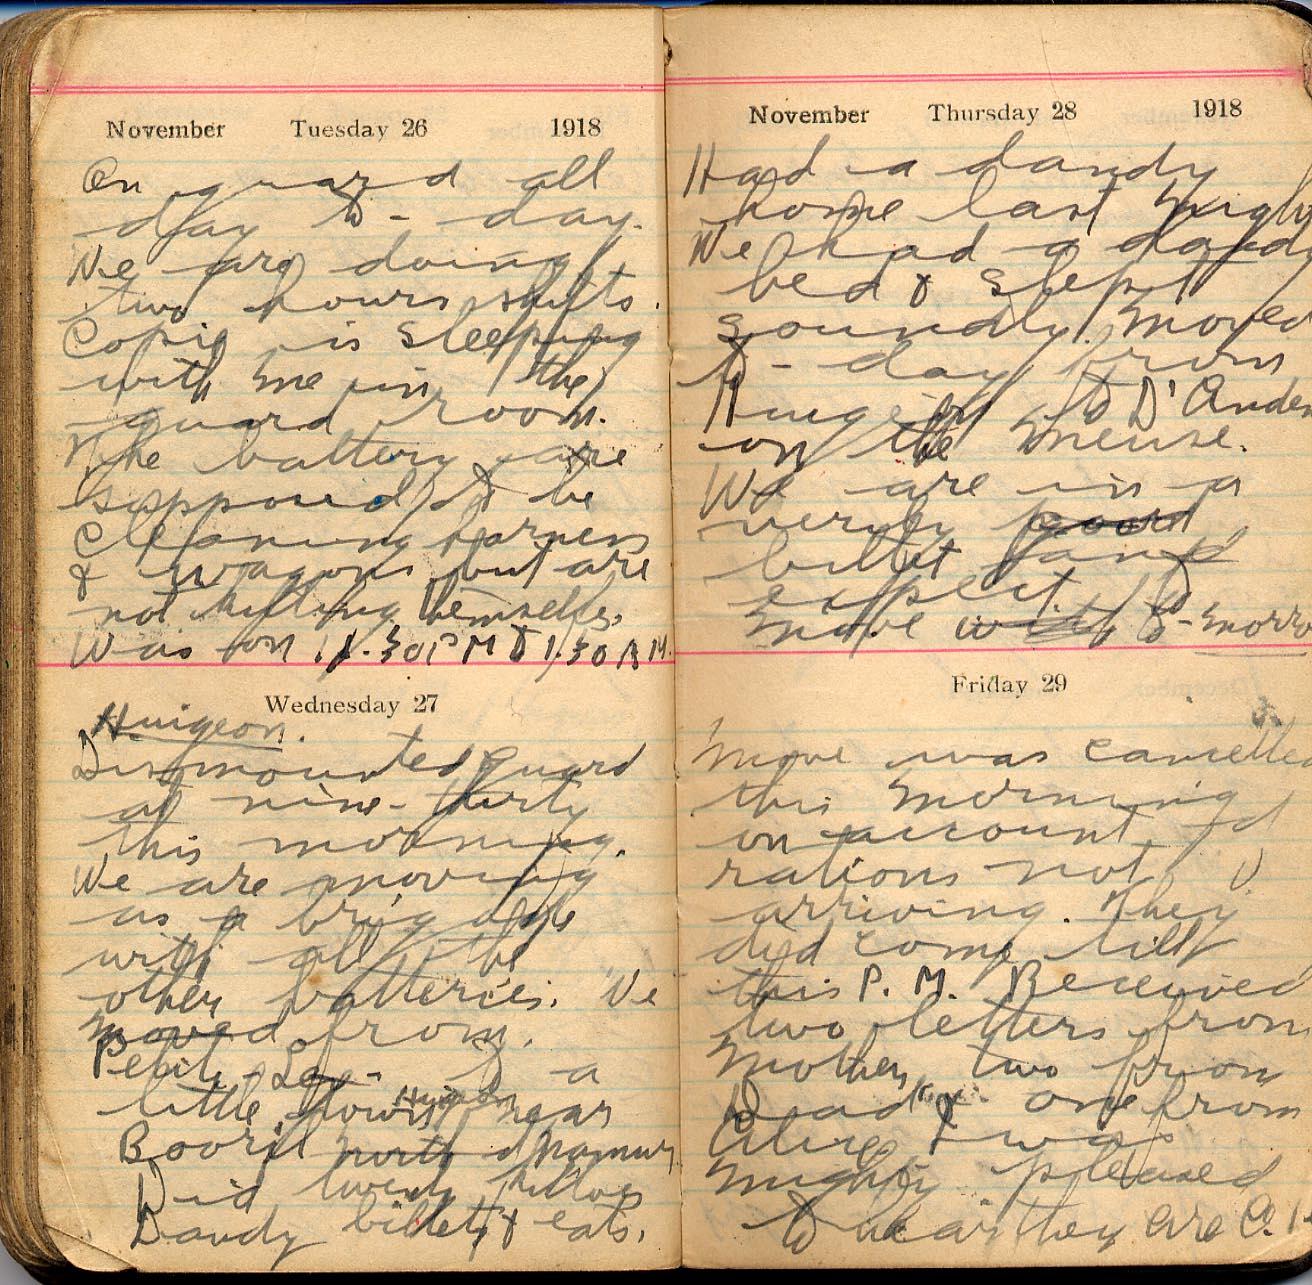 November Tuesday 26 1918
On guard all
day to-day.
We are doing
two hours shifts.
Copie is sleeping
with me in the
guard room.
The battery are
supposed to be
cleaning harness
& wagons but are
not killing themselves.
Was on 11.30 PM to 1.30 AM.
Wednesday 27
Huigeon.
Dismounted guard
at nine-thirty
this morning.
We are moving
as a brigade
with all the
other batteries. We
moved from
Petit-Lez- to a
little town Huigeon near
north Namur
Did twenty killos
Dandy billets & eats.
November Thursday 28 1918
Had a dandy
home last night
We had a dandy
bed & slept
soundly. Moved
to-day from
Huigeon to D'Anden
on the Meuse.
We are in a
very poor
billet and
expect to
move to-morro
Friday 29
Move was cancelled
this morning
on account of
rations not
arriving. They
did come till
this P.M. Received
two letters from
Mother, two from
Dad & one from
Alice. I was
mighty pleased
to hear they are O.K.